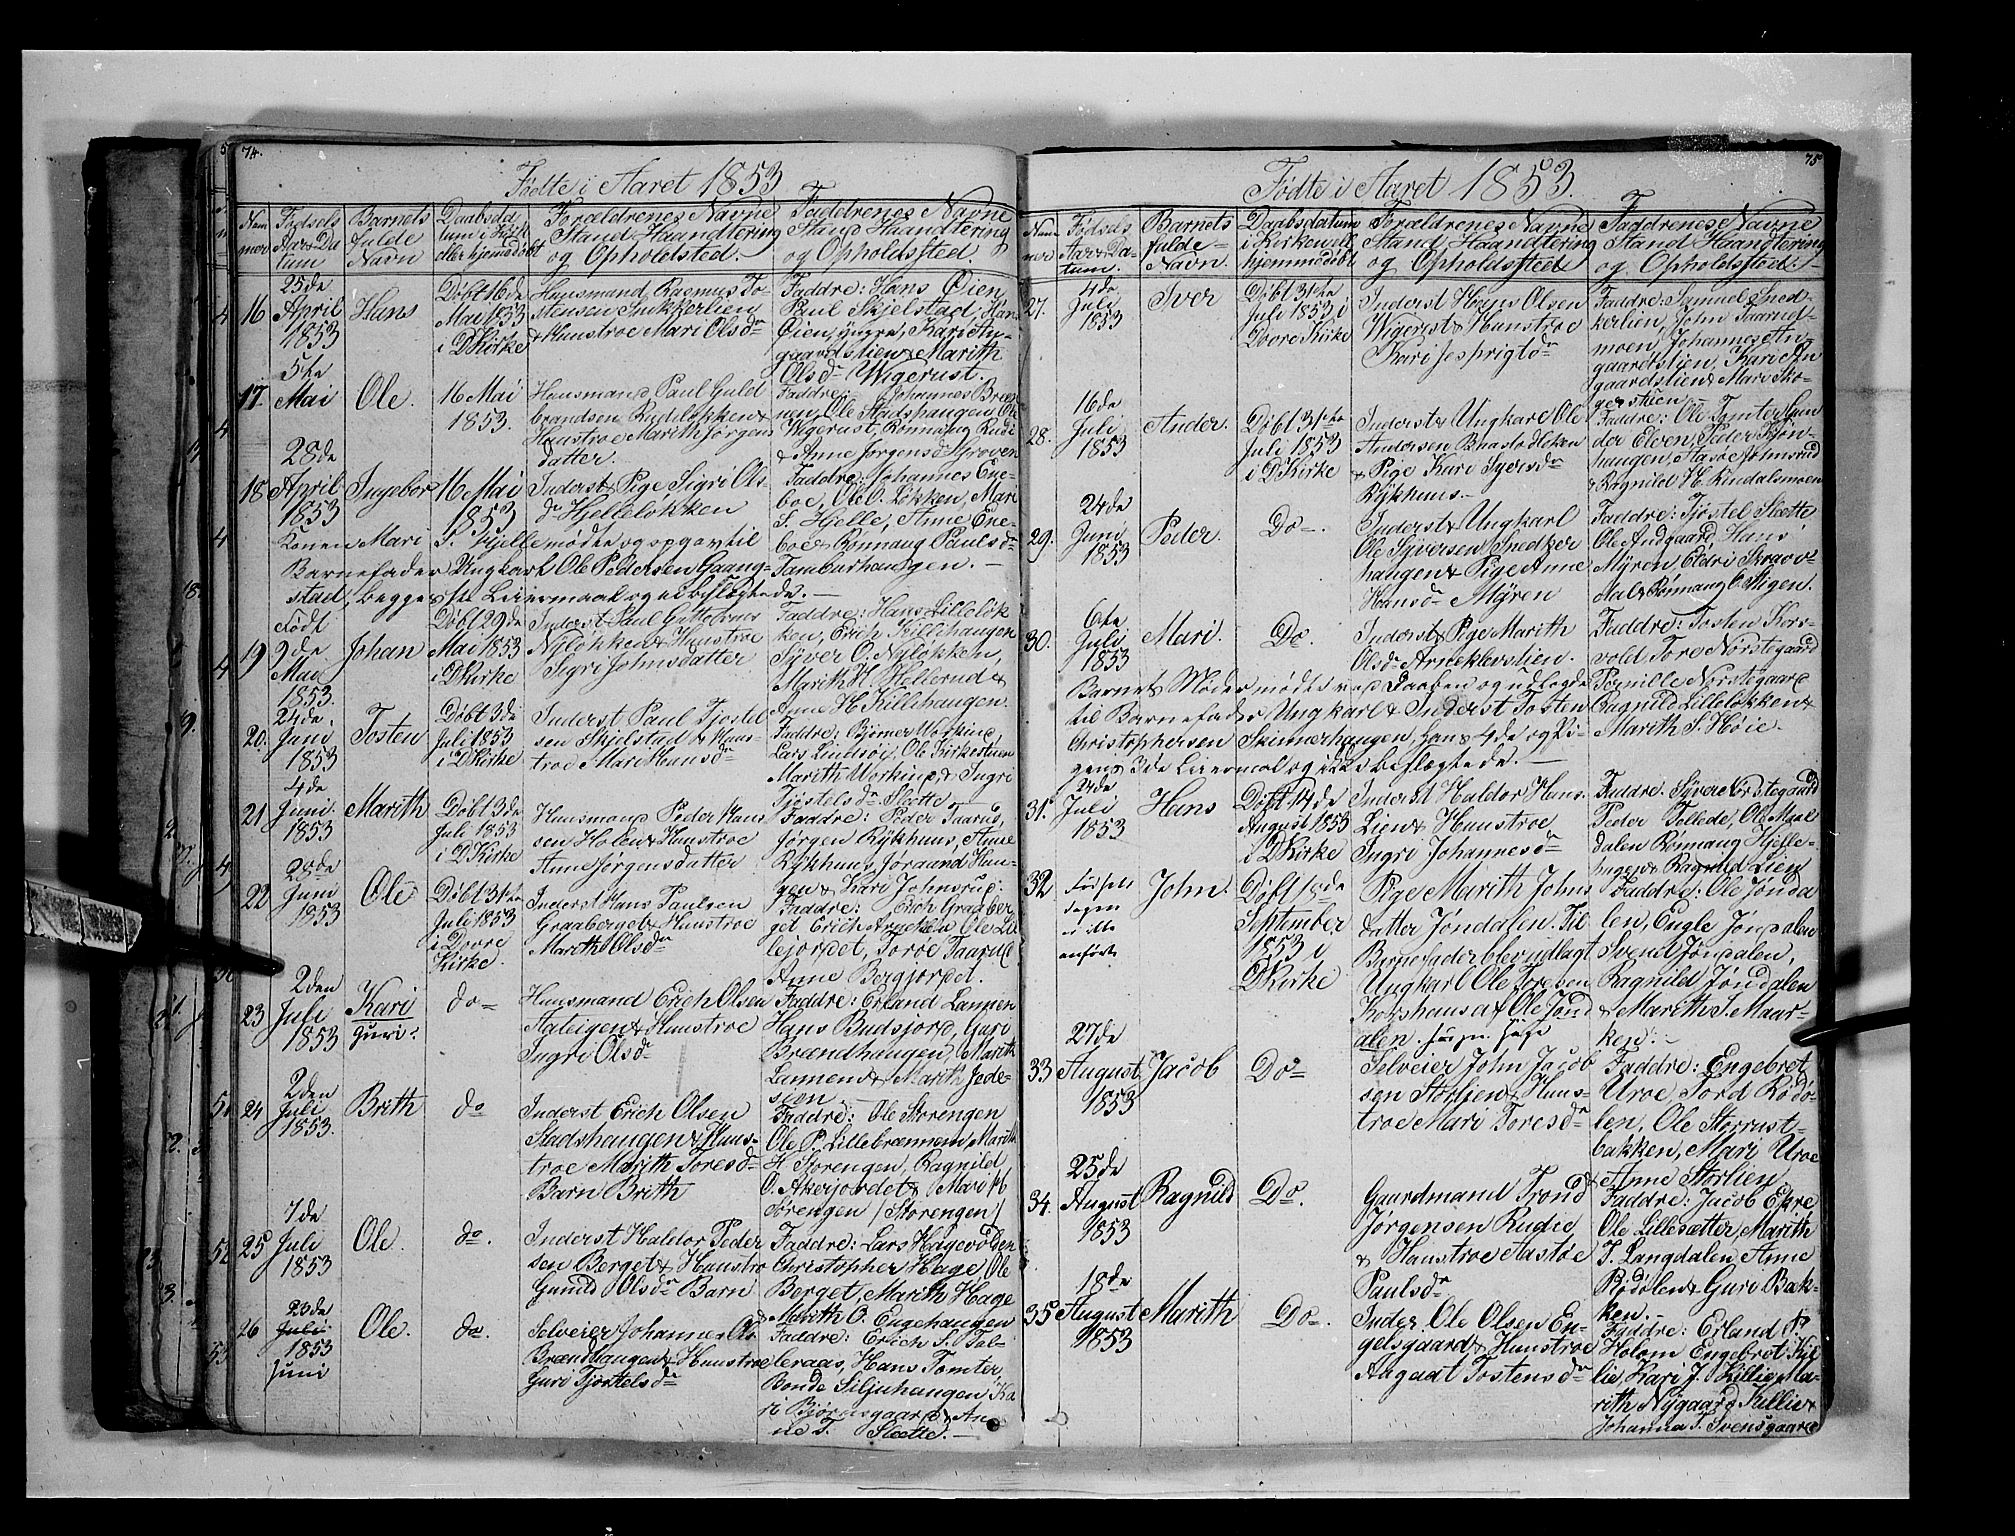 74.
Fødte i Aaret 1853
Num
mer
Fødsels
Aar & Da
tum
Barnets
fulde
Navn
Daabsda
tum i Kirk
eller hjemmedøbt
Forældrenes Navne
Stand Haandtering
og Opholdsted.
Faddrenes Navne
Stand Haandtering
og Opholdssted.
16
25de
April
1853
Hans
Døbt 16de
Mai 1853
i D Kirke
Huusmand Rasmus To-
stensen Snekkerlien
& Hustroe Mari Olsdr
Faddre: Hans Øien
Paul Skjelstad, Hans
Øien, yngre, Kari An-
gaardstien & Marith
Olsdr Wigerust.
17
5te
Mai
Ole.
16 Mai
1853.
Huusmand Paul Guld
brandsen Rudiløkken &
Hustroe Marith Jørgens
datter.
Faddre: Johannes Bræn
nen, Ole Stadshaugen, Ole
Wigerust, Rønnaug Rudi
& Anne Jørgensdr
18
28de
April
1853
Ingebor
16 Mai
1853
Inderst & Pige Sigri Ols-
dr Hjelleløkken
Faddre: Johannes Ene-
boe, Ole O. Løkken, Mari
S. Hjelle, Anne Ene-
boe & Rønnaug Paulsdr
Tamburhaugen. —
Konen Mari S. Hjelle mødte og opgav til
Barnefader Ungkarl Ole Pedersen Gaang-
stad, begges 1ste Leiermaal og ei beslægtede. —
19
Født
9de
Mai
1853.
Johan
Døbt 29de
Mai 1853
i D Kirke
Inderst Paul Guttormsen
Nyløkken & Hustroe
Sigri Johnsdatter
Faddre: Hans Lilleløk
ken, Erich Killihaugen
Syver O. Nyløkken,
Marith H. Hellerud &
Anne H. Killihaugen.
20.
24de.
Juni
1853
Tosten
Døbt 3di
Juli 1853
i D Kirke
Inderst Paul Tjostel
sen Skjelstad & Hus-
troe Mari Hansdr
Faddre: Bjørner Workind,
Lars Lindsøi, Ole Kirkestuen
Marith Workind & Ingri
Tjostelsdr Slette —
21
4de
Juni.
1853
Marith
Døbt 3de
Juli 1853
i D Kirke
Huusmand Peder Hans
sen Holen & Hustroe
Anne Jørgensdatter
Faddre: Peder Taarud,
Jørgen Rykhuus, Anne
Rykhuus, Joraand Hau-
gen & Kari Johnsrud.
22
28de
Juni
1853
Ole
Døbt 31te
Juli 1853
i Dovre
Kirke.
Inderst Hans Paulsen
Graaberget & Hustroe
Marith Olsdr
Faddre: Erich Graaber
get, Erich Ole Lil
lejordet, Torre Taarud
Anne Bergjordet.
23
2den
Juli
1853
Kari
Guri.
do=
Huusmand Erich Olsen
Aateigen & Hustroe
Ingri Olsdr
Faddre: Erland Lannem
Hans Budsjord, Guri
Brændhaugen, Marith
Lannem & Marith Jede-
sien —
24
2den
Juli
1853.
Brith
do
Inderst Erich Olsen
Stadshaugen & Hus-
troe Marith Toresdr
Barn Brith
Faddre: Ole Storengen
Ole P. Lillebrænnen, Marith
H. Storengen, Ragnild
O. Akerjordet & Marith
Storengen / Storengen /
25
7de
Juli
1853
Ole.
do.
Inderst Haldor Peder
sen Berget & Hustro
Gunild Olsdr Barn
Faddre: Lars Hagevolden
Christopher Hage, Ole
Berget, Marith Hage
& Marith O. Engehaugen
26
23de
Juli
1853
Juni
Ole.
do.
Selveier Johannes Ols
Brændhaugen & Hustroe
Guri Tjostelsdr
Faddre: Erich S. Tol-
leraas, Hans Tomter,
Bonde Siljuhaugen, Ka
ri Bjørnsgaard & An-
ne T. Slette. —
75
Fødte i Aaret 1853.
Num
mer
Fødsels
Aar & Da-
tum.
Barnets
fulde
Navn.
Daabsdatum
i Kirke eller
hjemmedøbt
Forældrenes Navne
Stand Haandtering
og Opholdssted
Faddrenes Navne
Stand Haandtering
og Opholdssted. —
27.
4de
Juli
1853
Iver
Døbt 31te
Juli 1853 i
Dovre Kirke
Inderst Hans Olsen
Wigerst & Hustroe
Kari Jesprigtdr
Faddre: Samuel Sned-
kerlien, John Taarud-
moen, Johannes An
gaardstien, Kari An
gaardstien & Mari Sko-
gerstien —
28.
16de
Juli
1853
Ander.
Døbt 31te
Juli 1853
i D Kirke
Inderst & Ungkarl Ole
Andersen
& Pige Kari Syversdr
Rykhuus —
Faddre: Ole Tomter, Gun
der Elven, Peder Kjøn-
haugen, Aasøe Johnsrud
& Ragnild H. Rindalsmoen
29.
24de
Juni
1853
Peder
Do—.
Inderst & Ungkarl
Ole Syversen Snedker
haugen & Pige Anne
Hansdr Myren
Faddre: Tjostel Slette
Ole Andgaard, Hans
Myren, Eldri
& Rønnaug O. Stigen.
30.
6te
Juli
1853
Mari.
Do
Inderst & Pige Marith
Olsdr Arneklevstien.
Faddre: Tosten Kors-
vold, Tore Norstegaard
Pernille Norstegaard
Ragnild Lilleløkken &
Marith S. Høie.
Barnets Moder mødte ved Daaben og udlagde
til Barnefader Ungkarl & Inderst Tosten
Christophersen Skinnerhaugen, hans 4de og Pi-
gens 3de Leiermaal og ikke beslægtede. —
31.
24de
Juli
1853
Hans
Døbt 14de
August 1853
i D Kirke
Inderst Haldor Hans.
Lien & Hustroe
Ingri Johannesdr
Faddre: Syver Nordstegaard
Peder Tollede, Ole Mæl
dalen, Rønnaug Hjelle-
hagen & Ragnild Lien
32
Fødsels
dagen
ei
anført
John.
Døbt 18de
September
1853 i
D Kirke
Pige Marith Johns
datter Jøndalen. Til
Barnefader blev udlagt
Ungkarl Ole Toresen
Korshaug af Ole Jønd
alen.
Faddre: Ole Jønda
len, Engle Jøndalen
Svend Jøndalen,
Ragnild Jøndalen
& Marith S. Maur-
ken. —
33
27de
August
1853
Jacob
Do=
Selveier John Jacob
sen Storlien & Hus-
troe Mari Toresdr
Faddre: Engebret
Uroe, Tord Rødø-
len, Ole Storrust-
bakken, Mari Uroe
& Anne Storlien
34.
25de
August
1853
Ragnild
Do.
Gaardmand Trond
Jørgensen Rudie
& Hustroe Aastøe
Paulsdr
Faddre: Jacob Ekre
Ole Lillesætter, Marith
T. Langdalen, Anne
Rødølen & Guri Bak-
ken. —
35
18de
August
1853
Marith
Do—.
Inder. Ole Olsen En-
gelsgaard & Hustroe
Aagaat Tostensdr
Faddre: Erland P.
Holom, Engebret Kil
lie, Kari J. Killie, Ma-
rith Nygaard, Killie &
Johanna T. Svensgaard